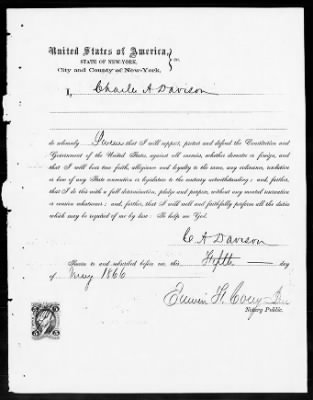 United States of America,
STATE OF NEW-YORK,
City and County of New-York,
} ss.
I, Charles A Davison
do solemnly Swear that I will support, protect and defend the Constitution and
Government of the United States, against all enemies, whether domestic or foreign, and
that I will bear true faith, allegiance and loyalty to the same, any ordinance, resolution
or law of any State convention or legislation to the contrary notwithstanding; and, further,
that I do this with a full determination, pledge and purpose, without any mental reservation
or evasion whatsoever; and, further, that I will well and faithfully perform all the duties
which may be required of me by law. So help me God.
C A Davison
Sworn to and subscribed before me, this Fifth day
of May 1866
Edwin F. Corey
Notary Public.